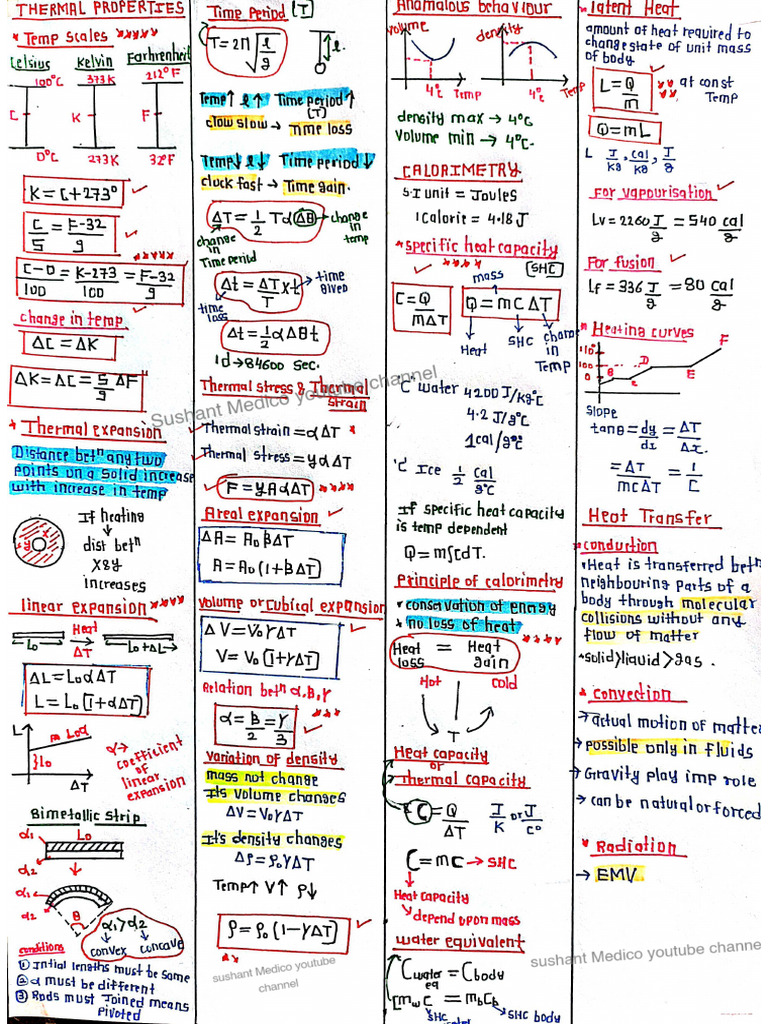 THERMAL PROPERTIES
* Temp scales ****
Celsius Kelvin Farhrenheit
100°C 373K 212°F
C K F
0°C 273K 32°F
K = C+273°
C/5 = F-32/9
C-0/100 = K-273/100 = F-32/9
change in temp
ΔC = ΔK
ΔK = ΔC = 5/9 ΔF
* Thermal expansion
Distance betⁿ any two
points on a solid increase
with increase in temp
If heating
x y
dist betⁿ
x & y
increases
linear expansion ****
Heat
L₀ ΔT L₀+ΔL
ΔL = L₀αΔT
L = L₀[1+αΔT]
L m = L₀α
L₀
ΔT
α → coefficient
of
linear
expansion
Bimetallic strip
α₁ L₀
α₂
α₁
α₂ θ
α₁ > α₂
convex concave
conditions
① Intial lengths must be same
② α must be different
③ Rods must Joined means
pivoted
Time Period (T)
T = 2π√l/g
l.
Teme↑ l↑ Time period↑
(T)
clow slow → Time loss
Temp↓ l↓ Time period↓
cluck fast → Time gain.
ΔT = 1/2 Tα Δθ → change
in
temp
change
in
Time period
Δt = ΔT/T x t → time
gived
time
loss
Δt = 1/2 αΔθt
1d → 84600 sec.
Thermal stress & Thermal
strain
Thermal strain = αΔT *
Thermal stress = yαΔT
F = yAαΔT ****
Areal expansion
ΔA = A₀βΔT
A = A₀(1+βΔT)
volume or cubical expansion
ΔV = V₀γΔT
V = V₀[1+γΔT]
Relation betⁿ α,β,γ
α = β/2 = γ/3 ***
variation of density
mass not change
Its volume changes
ΔV = V₀γΔT
It's density changes
Δρ = ρ₀γΔT
Temp↑ V↑ ρ↓
ρ = ρ₀(1-γΔT)
**
sushant Medico youtube
channel
Anamalous behaviour
volume density
4°C Temp 4°C Temp
density max → 4°C
Volume min → 4°C.
CALORIMETRY
S.I unit = Joules
1 calorie = 4.18 J
* specific heat capacity
**** (SHC)
mass
C = Q/mΔT Q = mCΔT
Heat SHC change
in
Temp
'C' water 4200 J/kg°C
4.2 J/g°C
1 cal/g°C
'C' Ice 1/2 cal/g°C
If specific heat capacity
is temp dependent
Q = m∫CdT.
Principle of calorimetry
* conservation of energy
* no loss of heat
****
Heat loss = Heat gain
Hot cold
T
Heat capacity
or
Thermal capacity
C = Q/ΔT J/K or J/C°
C = mC → SHC
Heat capacity
depend upon mass
water equivalent
C water eq = C body
[m_w C = m_b C_b
SHC SHC body
water
latent Heat
amount of heat required to
change state of unit mass
of body
L = Q/m ** at const
Temp
Q = mL
L J/kg, cal/kg, J/g
For vapourisation
Lv = 2260 J/g = 540 cal/g
For fusion
Lf = 336 J/g = 80 cal/g
* Heating curves
110
100
0
B C D E F
slope
tanθ = dy/dx = ΔT/Δx.
= ΔT/mCΔT = 1/C
Heat Transfer
conduction
* Heat is transferred betⁿ
neighbouring parts of a
body through molecular
collisions without any
flow of matter
* solid > liquid > gas.
* convection
→ actual motion of matter
→ possible only in fluids
→ Gravity play imp role
→ can be natural or forced
* Radiation
→ EMV.
sushant Medico youtube channel
Sushant Medico youtube channel